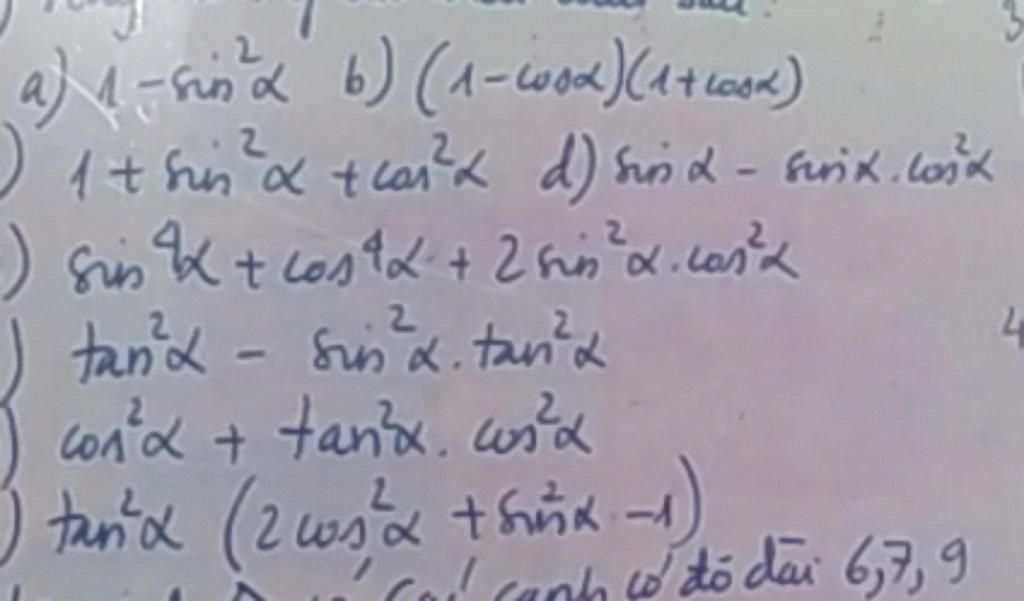 a) 1 - sin²α b) (1 - cosα)(1 + cosα)
) 1 + sin²α + cos²α d) sin α - sin α . cos²α
) sin⁴α + cos⁴α + 2 sin²α . cos²α
) tan²α - sin²α . tan²α
) cos²α + tan²α . cos²α
) tan²α (2cos²α + sin²α - 1)
cạnh có độ dài 6, 7, 9